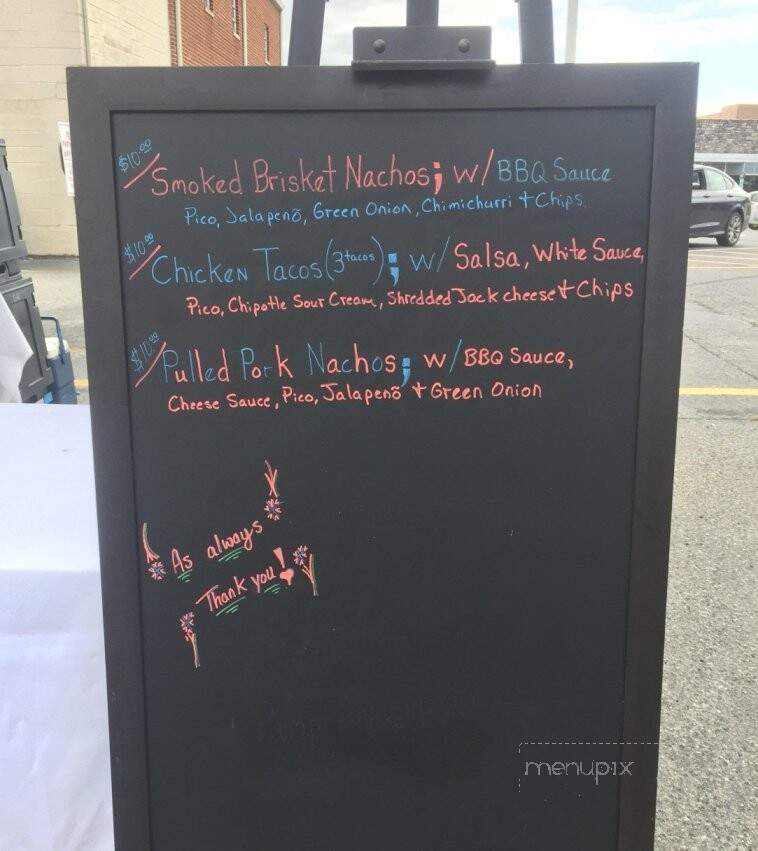 $10.00 Smoked Brisket Nachos; w/ BBQ Sauce
Pico, Jalapeño, Green Onion, Chimichurri + Chips
$10.00 Chicken Tacos (3 tacos); w/ Salsa, White Sauce,
Pico, Chipotle Sour Cream, Shredded Jack cheese + Chips
$10.00 Pulled Pork Nachos; w/ BBQ Sauce,
Cheese Sauce, Pico, Jalapeño + Green Onion
As always
Thank you!
menupix